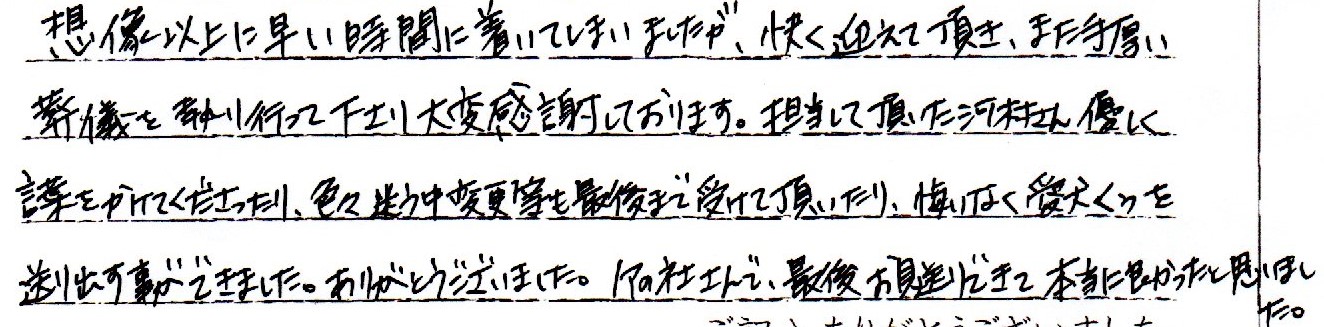 想像以上に早い時間に着いてしまいましたが、快く迎えて頂き、また手厚い
葬儀を執り行って下さり大変感謝しております。担当して頂いた河村さん優しく
言葉をかけてくださったり、色々迷う中変更等も最後まで受けて頂いたり、悔いなく愛犬くぅを
送り出す事ができました。ありがとうございました。 社さんで、最後お見送りできて本当に良かったと思いまし
た。
ありがとうございました